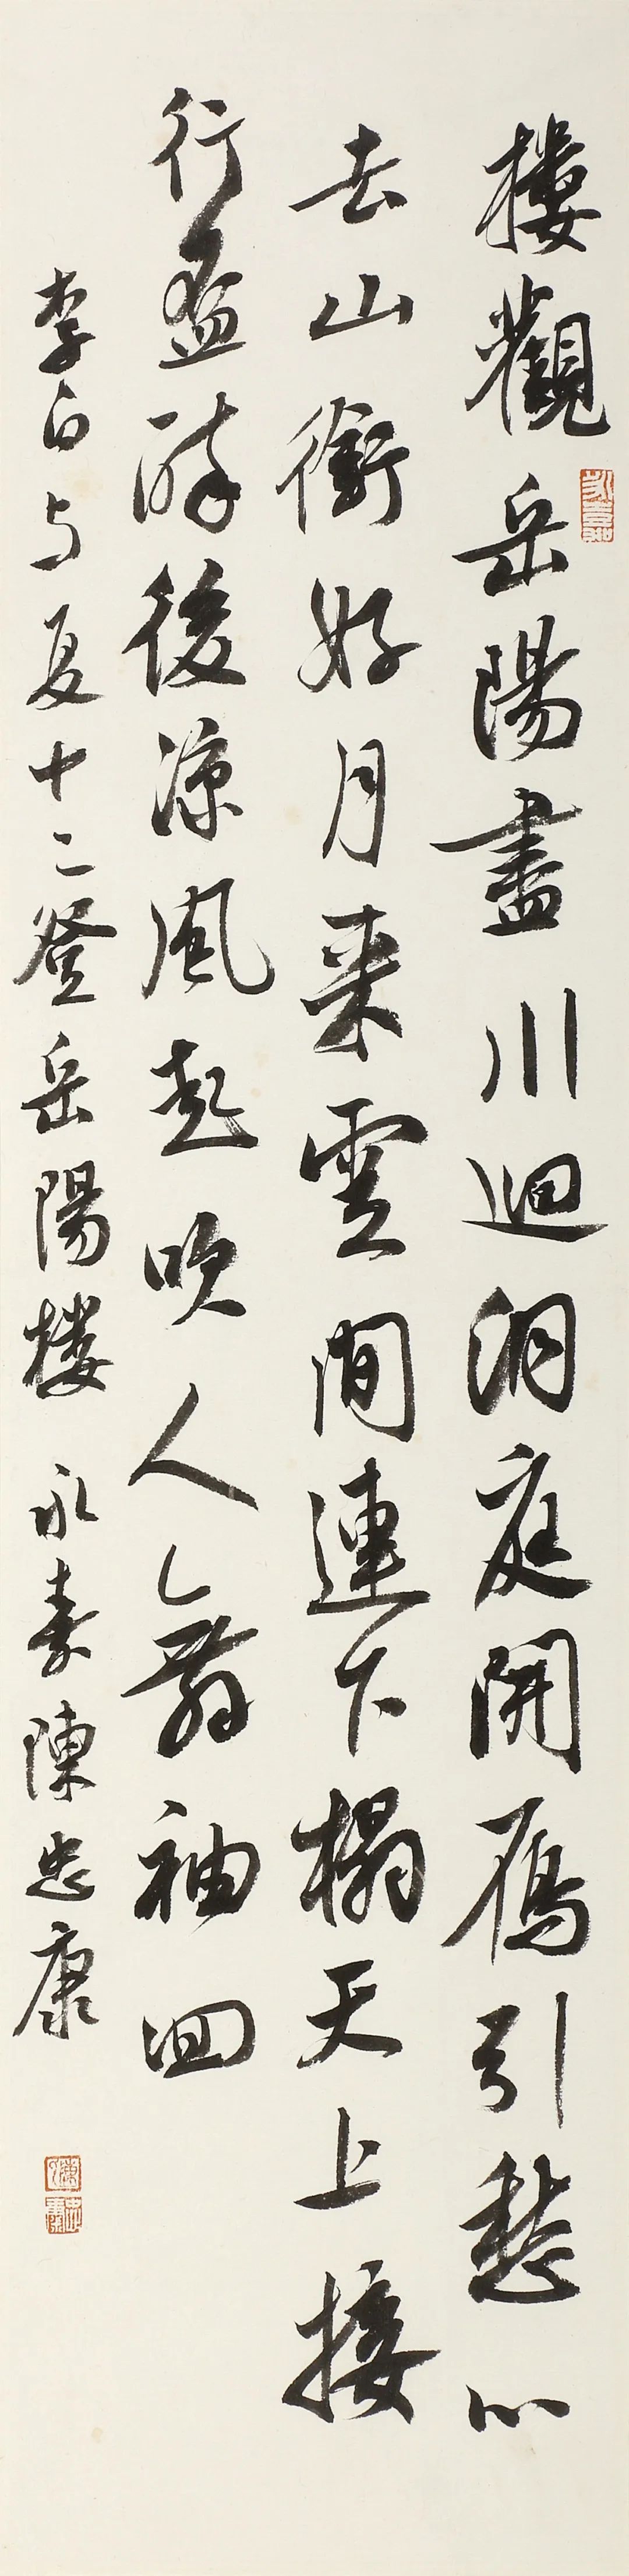 樓觀岳陽盡川迴洞庭開雁引愁心
去山銜好月来雲間連下榻天上接
行盃醉後涼風起吹人舞袖回
李白与夏十二登岳陽樓 永嘉陳忠康
陳忠康印